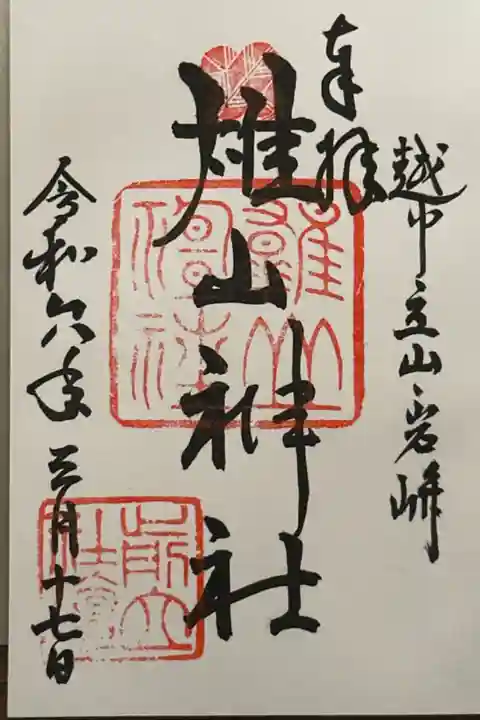 奉拝
越中立山岩峅
雄山神社
令和六年三月十七日
雄山
神社
前立
社壇